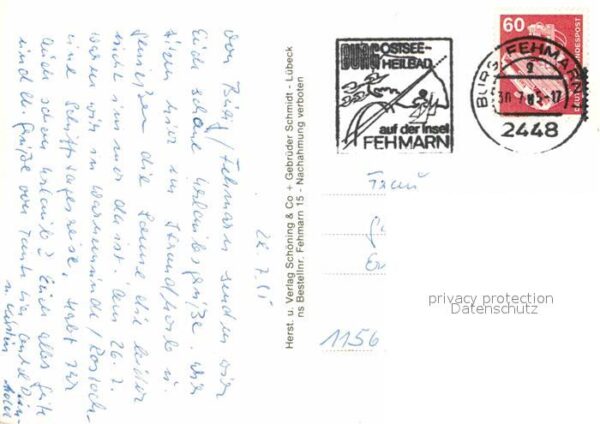 von Burg / Fehmarn senden wir
Euch schöne Urlaubsgrüße. Wir
sitzen hier im Strandkorb u.
genießen die Sonne die leider
nicht immer da ist. Am 26.7.
waren wir in Warnemünde / Rostock
eine Schiffstagesreise. Habt Ihr
auch schon Urlaub? Euch alles Gute
und Grüße von Tante
28.7.85
Herst. u. Verlag Schöning & Co + Gebrüder Schmidt - Lübeck
ns Bestellnr. Fehmarn 15 - Nachahmung verboten
BURG OSTSEE-
HEILBAD
auf der Insel
FEHMARN
60
DEUTSCHE BUNDESPOST
BURG, FEHMARN
g
30.7.85-17
2448
Frau
1156
privacy protection
Datenschutz